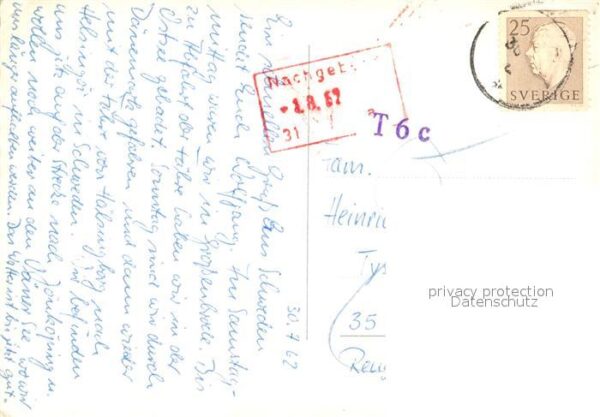 30.7.62
Ein schnelles Grüß aus Schweden
sendet Euch Wolfgang. Am Samstag-
mittag waren wir in Großenbrode. Bis
zu Abfahrt der Fähre haben wir in der
Ostsee gebadet. Sonntag sind wir durch
Dänemark gefahren und dann wieder
mit der Fähre von Helsingborg nach
Helsingör in Schweden. Jetzt befinden
uns auf der Strecke nach Jönköping u.
wollen noch weiter an den Väner See wo wir
uns länger aufhalten werden. Das Wetter ist bis jetzt gut.
Nachgeb
-1.8.62
31
T6c
25
SVERIGE
Fam.
Heinri
35
privacy protection
Datenschutz